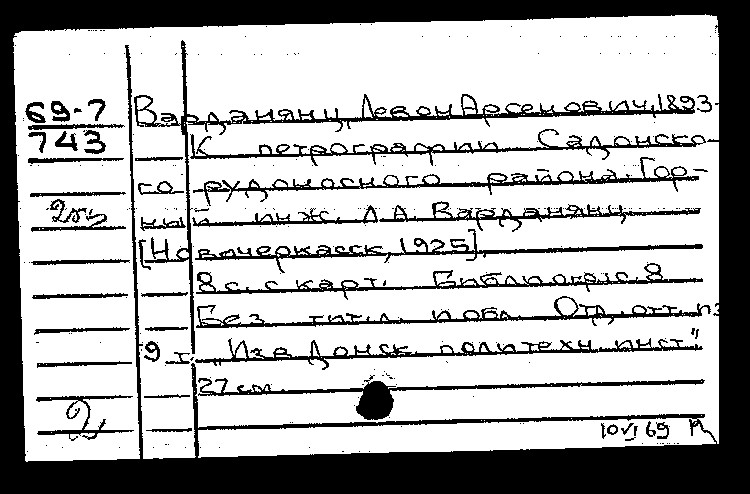 69-7
743
2экз
Варданянц, Левон Арсенович, 1893-
К петрографии Садонско-
го рудоносного района. Гор-
ный инж. Л.А. Варданянц
[Новочеркасск, 1925].
8 с. с карт. Библиогр. с. 8
Без тит. л. и обл. Отд. отт. из
9 т. „Изв Донск. политехн. инст."
27 см.
2
10 VI 69